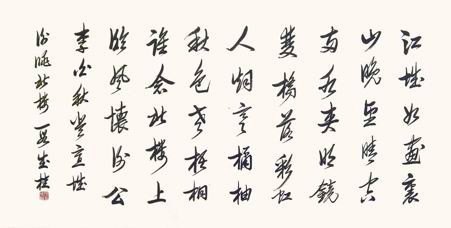 江城如畫裏
山晚望晴空
兩水夾明鏡
雙橋落彩虹
人烟寒橘柚
秋色老梧桐
誰念北樓上
臨風懷謝公
李白秋登宣城
謝朓北樓